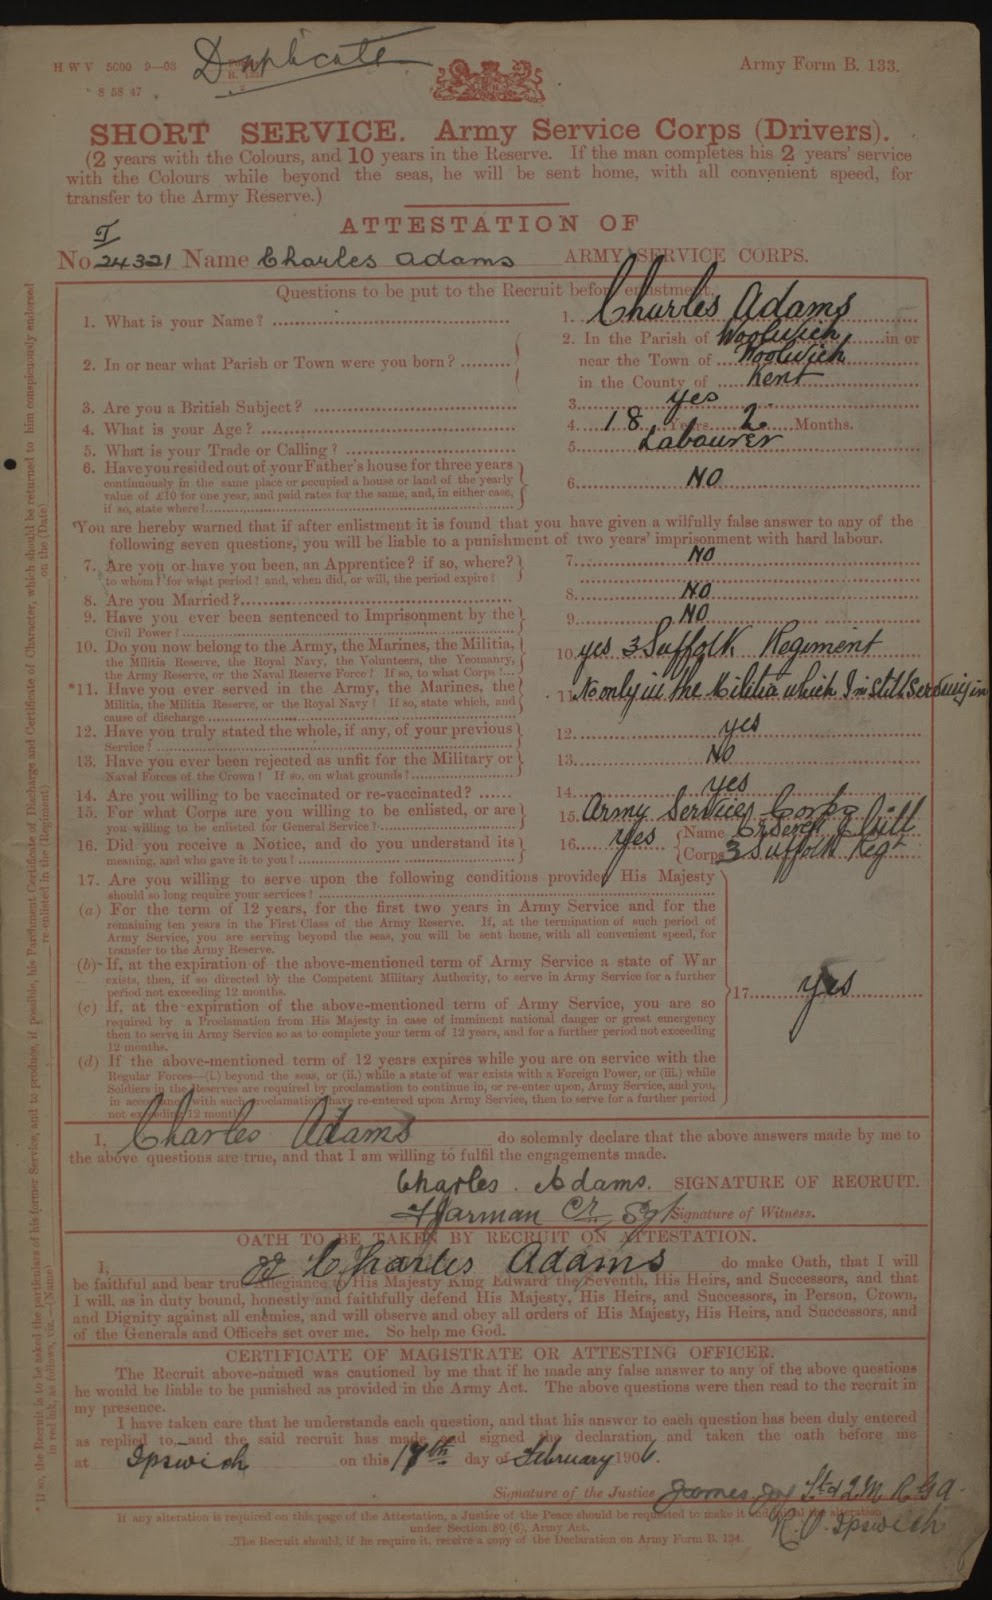 H W V 5000 9—03
Duplicate
Army Form B. 133.
8 58 47
SHORT SERVICE. Army Service Corps (Drivers).
(2 years with the Colours, and 10 years in the Reserve. If the man completes his 2 years' service
with the Colours while beyond the seas, he will be sent home, with all convenient speed, for
transfer to the Army Reserve.)
ATTESTATION OF
No T/24321 Name Charles Adams ARMY SERVICE CORPS.
Questions to be put to the Recruit before enlistment.
1. What is your Name? 1. Charles Adams
2. In or near what Parish or Town were you born? 2. In the Parish of Woolwich in or
near the Town of Woolwich
in the County of Kent
3. Are you a British Subject? 3. yes
4. What is your Age? 4. 18 Years 2 Months.
5. What is your Trade or Calling? 5. Labourer
6. Have you resided out of your Father's house for three years
continuously in the same place or occupied a house or land of the yearly
value of £10 for one year, and paid rates for the same, and, in either case,
if so, state where? 6. NO
You are hereby warned that if after enlistment it is found that you have given a wilfully false answer to any of the
following seven questions, you will be liable to a punishment of two years' imprisonment with hard labour.
7. Are you or have you been, an Apprentice? if so, where? 7. NO
to whom? for what period? and, when did, or will, the period expire?
8. Are you Married? 8. NO
9. Have you ever been sentenced to Imprisonment by the 9. NO
Civil Power?
10. Do you now belong to the Army, the Marines, the Militia, 10. yes 3 Suffolk Regiment
the Militia Reserve, the Royal Navy, the Volunteers, the Yeomanry,
the Army Reserve, or the Naval Reserve Force? If so, to what Corps?
*11. Have you ever served in the Army, the Marines, the 11. No only in the Militia which I m still Serving in
Militia, the Militia Reserve, or the Royal Navy? If so, state which, and
cause of discharge
12. Have you truly stated the whole, if any, of your previous 12. yes
Service?
13. Have you ever been rejected as unfit for the Military or 13. NO
Naval Forces of the Crown? If so, on what grounds?
14. Are you willing to be vaccinated or re-vaccinated? 14. yes
15. For what Corps are you willing to be enlisted, or are 15. Army Service Corps
you willing to be enlisted for General Service?
16. Did you receive a Notice, and do you understand its 16. yes Name
meaning, and who gave it to you? Corps 3 Suffolk Regt
17. Are you willing to serve upon the following conditions provided His Majesty
should so long require your services?
(a) For the term of 12 years, for the first two years in Army Service and for the
remaining ten years in the First Class of the Army Reserve. If, at the termination of such period of
Army Service, you are serving beyond the seas, you will be sent home, with all convenient speed, for
transfer to the Army Reserve.
(b) If, at the expiration of the above-mentioned term of Army Service a state of War
exists, then, if so directed by the Competent Military Authority, to serve in Army Service for a further
period not exceeding 12 months. 17. yes
(c) If, at the expiration of the above-mentioned term of Army Service, you are so
required by a Proclamation from His Majesty in case of imminent national danger or great emergency
then to serve in Army Service so as to complete your term of 12 years, and for a further period not exceeding
12 months.
(d) If the above-mentioned term of 12 years expires while you are on service with the
Regular Forces—(i.) beyond the seas, or (ii.) while a state of war exists with a Foreign Power, or (iii.) while
Soldiers in the Reserves are required by proclamation to continue in, or re-enter upon, Army Service, and you,
in accordance with such proclamation, have re-entered upon Army Service, then to serve for a further period
not exceeding 12 months
I, Charles Adams do solemnly declare that the above answers made by me to
the above questions are true, and that I am willing to fulfil the engagements made.
Charles Adams. SIGNATURE OF RECRUIT.
Harman Cr Sgt Signature of Witness.
OATH TO BE TAKEN BY RECRUIT ON ATTESTATION.
I, Charles Adams do make Oath, that I will
be faithful and bear true Allegiance to His Majesty King Edward the Seventh, His Heirs, and Successors, and that
I will, as in duty bound, honestly and faithfully defend His Majesty, His Heirs, and Successors, in Person, Crown,
and Dignity against all enemies, and will observe and obey all orders of His Majesty, His Heirs, and Successors, and
of the Generals and Officers set over me. So help me God.
CERTIFICATE OF MAGISTRATE OR ATTESTING OFFICER.
The Recruit above-named was cautioned by me that if he made any false answer to any of the above questions
he would be liable to be punished as provided in the Army Act. The above questions were then read to the recruit in
my presence.
I have taken care that he understands each question, and that his answer to each question has been duly entered
as replied to, and the said recruit has made and signed the declaration and taken the oath before me
at Ipswich on this 17th day of February 1906.
Signature of the Justice James Lt & QM RGA.
R.O. Ipswich
If any alteration is required on this page of the Attestation, a Justice of the Peace should be requested to make it and initial the alteration
under Section 80 (6), Army Act.
The Recruit should, if he require it, receive a copy of the Declaration on Army Form B. 134.
* If so, the Recruit is to be asked the particulars of his former Service, and to produce, if possible, his Parchment Certificate of Discharge and Certificate of Character, which should be returned to him conspicuously endorsed
in red ink, as follows, viz.—(Name) re-enlisted in the (Regiment) on the (Date)